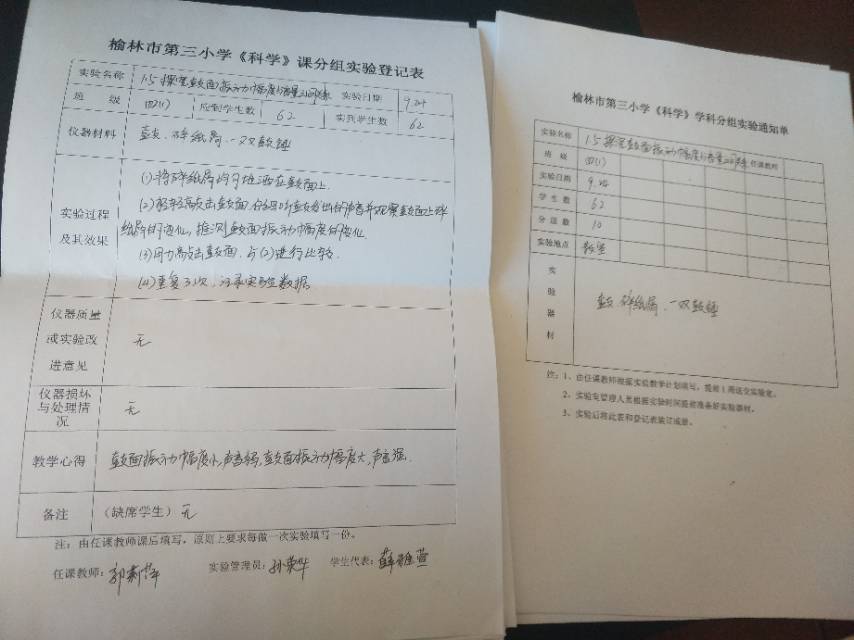 榆林市第三小学《科学》课分组实验登记表
实验名称 1.5探究鼓面振动幅度与音量的关系 实验日期 9.24
班 级 四(1) 应到学生数 62 实到学生数 62
仪器材料 鼓、碎纸屑、一双鼓锤
实验过程及其效果
(1)将碎纸屑均匀地洒在鼓面上.
(2)轻轻敲击鼓面,仔细听鼓发出的声音并观察鼓面上碎
纸屑的变化,推测鼓面振动幅度的变化.
(3)用力敲击鼓面,与(2)进行比较.
(4)重复3次,记录实验数据
仪器质量
或实验改 无
进意见
仪器损坏
与处理情 无
况
教学心得 鼓面振动幅度小,声音弱,鼓面振动幅度大,声音强.
备注 (缺席学生) 无
注:由任课教师课后填写,原则上要求每做一次实验填写一份。
任课教师: 实验管理员:孙荣华 学生代表:薛雅萱
榆林市第三小学《科学》学科分组实验通知单
实验名称 1.5探究鼓面振动幅度与音量的关系 任课教师
班 级 四(1)
实验日期 9.24
学 生 数 62
分 组 数 10
实验地点 教室
实
验
器
材
鼓 碎纸屑、一双鼓锤
注:1、由任课教师根据实验教学计划填写,提前1周送交实验室。
2、实验室管理人员根据实验时间提前准备好实验器材。
3、实验后将此表和登记表装订成册。